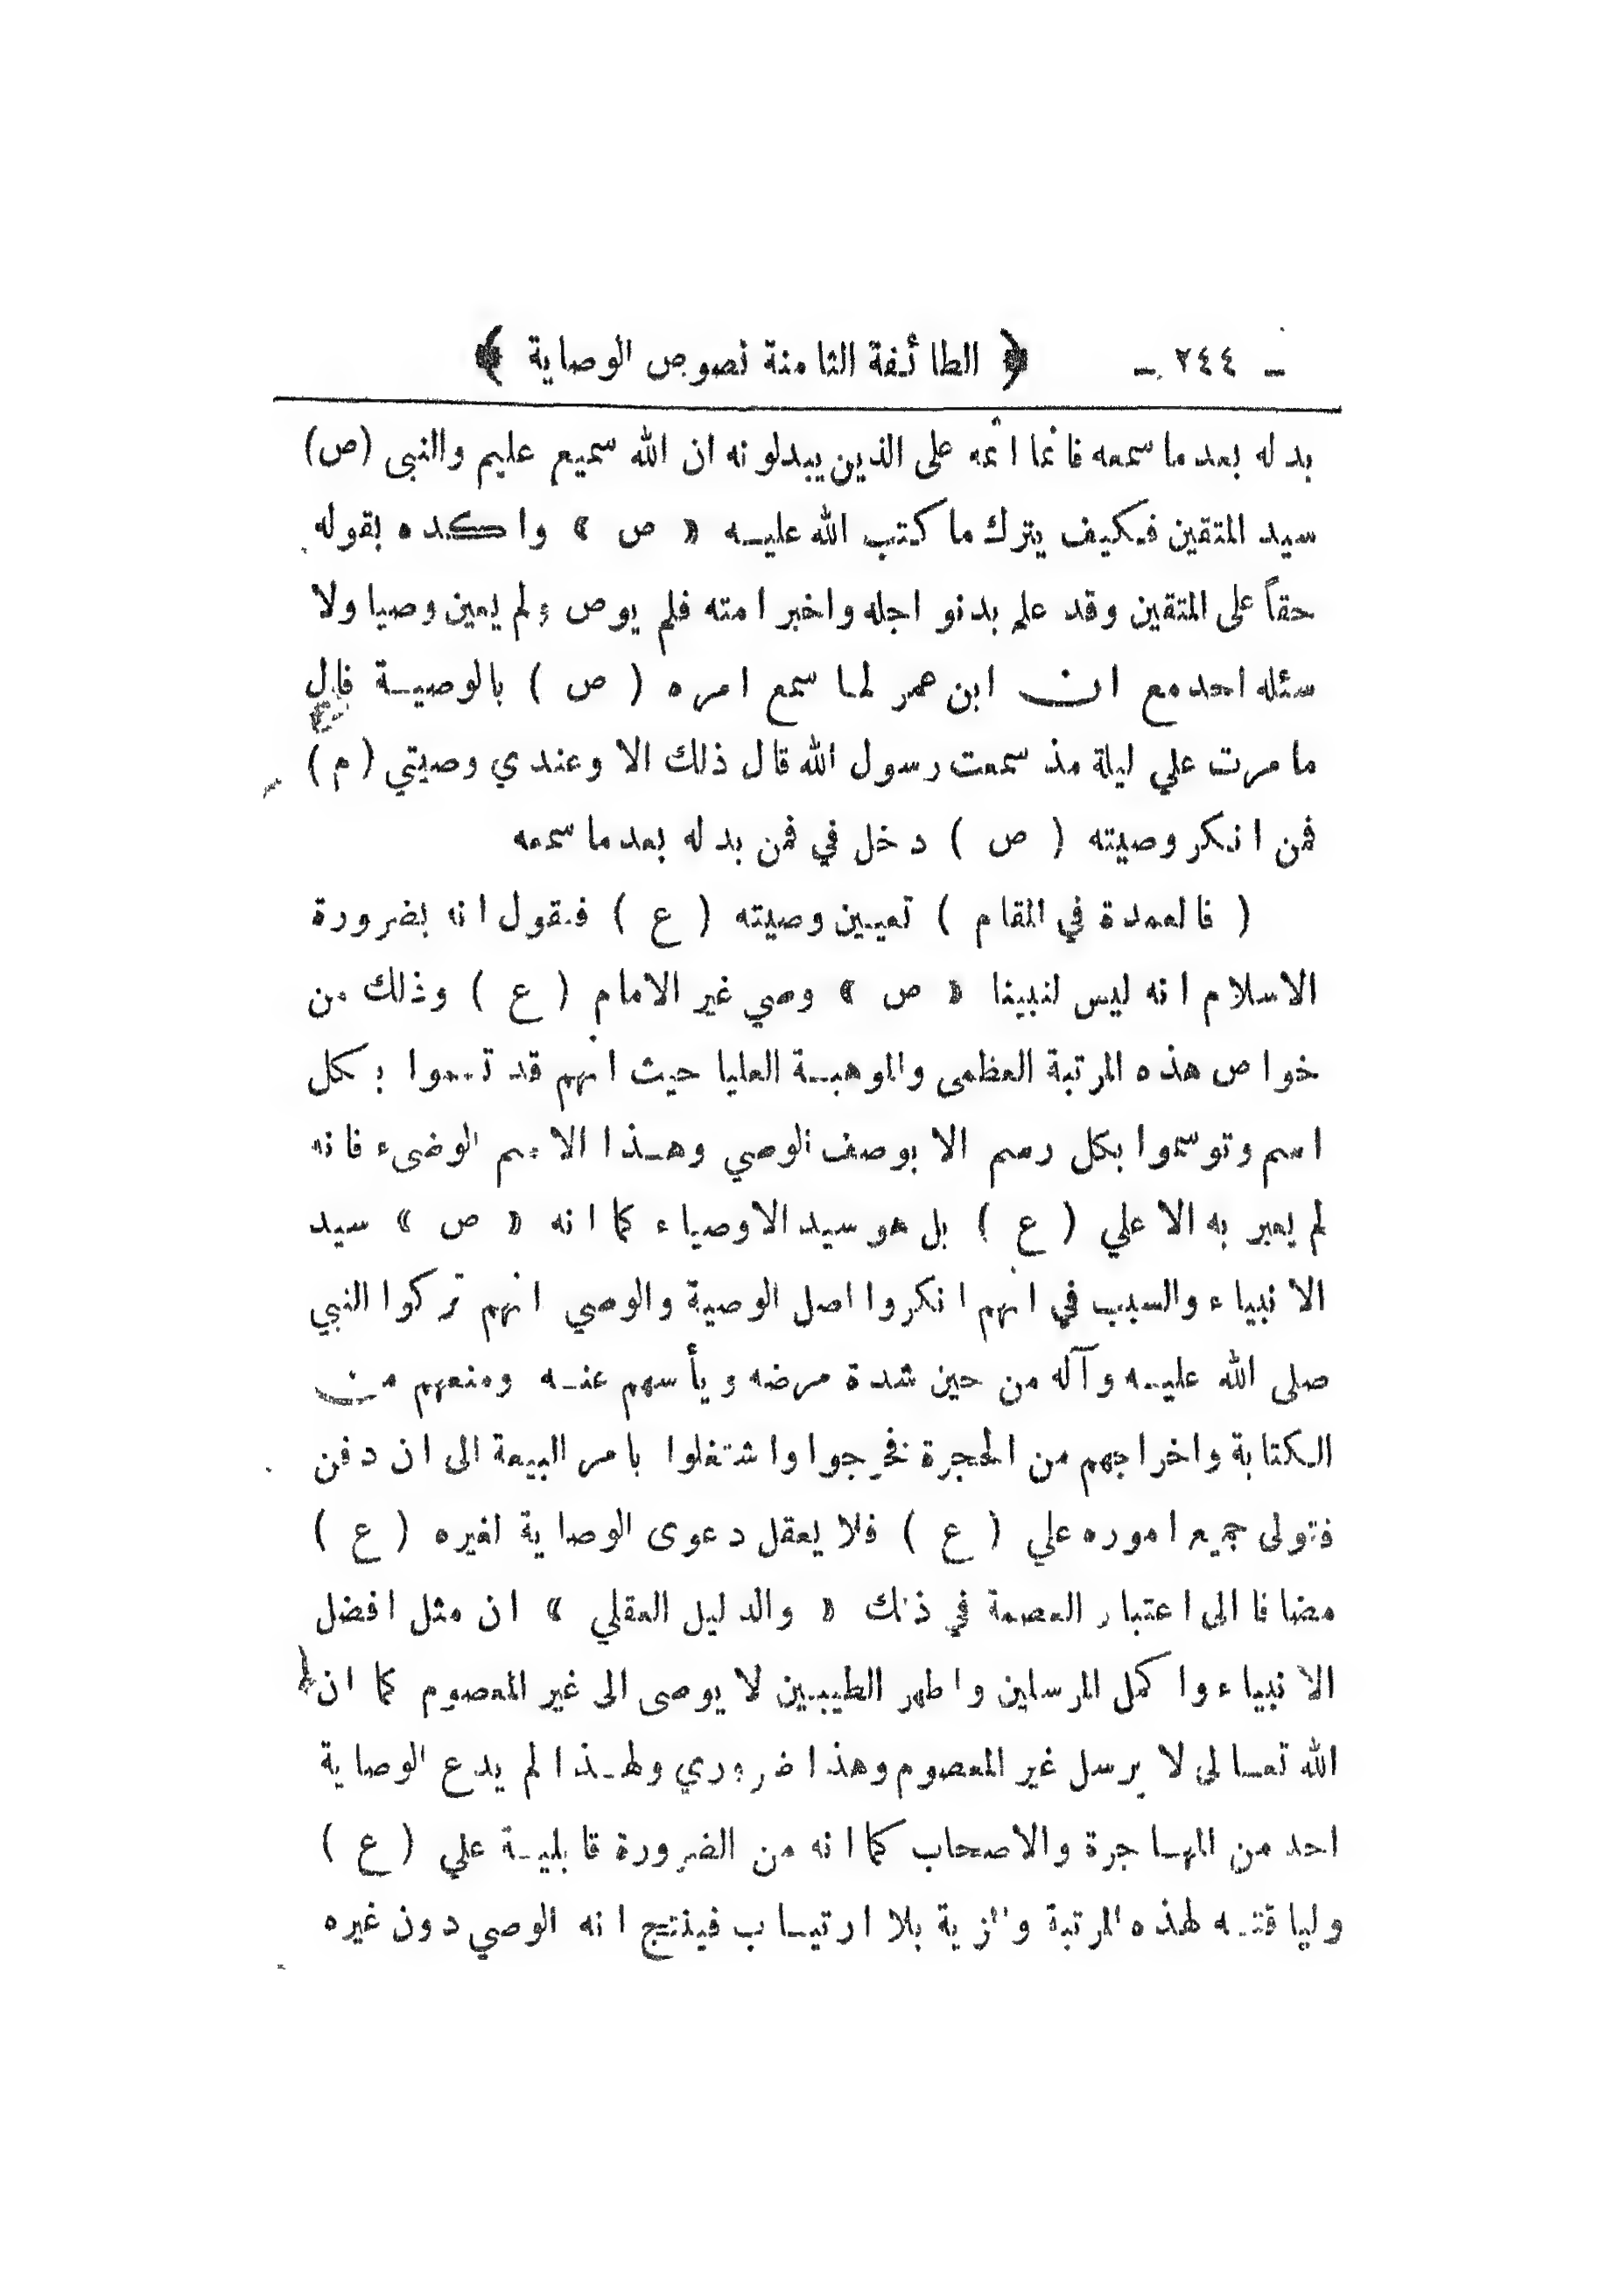 ـ ٢٤٤ ـ ﴿ الطائفة الثامنة نصوص الوصاية ﴾
بدله بعد ما سمعه فانما اثمه على الذين يبدلونه ان الله سميع عليم والنبى (ص)
سيد المتقين فكيف يترك ما كتب الله عليه « ص » واكده بقوله
حقاً على المتقين وقد علم بدنو اجله واخبر امته فلم يوص ولم يعين وصيا ولا
سئله احد مع ان ابن عمر لما سمع امره ( ص ) بالوصية قال
ما مرت علي ليلة مذ سمعت رسول الله قال ذلك الا وعندي وصيتي (م)
فمن انكر وصيته ( ص ) دخل في فمن بدله بعد ما سمعه
( فالعمدة في المقام ) تعيين وصيته ( ع ) فنقول انه بضرورة
الاسلام انه ليس لنبينا « ص » وصي غير الامام ( ع ) وذلك من
خواص هذه المرتبة العظمى والموهبة العليا حيث انهم قد تسموا بكل
اسم وتوسموا بكل رسم الا بوصف الوصي وهذا الاسم الوضىء فانه
لم يعبر به الا علي ( ع ) بل هو سيد الاوصياء كما انه « ص » سيد
الانبياء والسبب في انهم انكروا اصل الوصية والوصي انهم تركوا النبي
صلى الله عليه وآله من حين شدة مرضه ويأسهم عنه ومنعهم من
الكتابة واخراجهم من الحجرة فخرجوا واشتغلوا بامر البيعة الى ان دفن
فتولى جميع اموره علي ( ع ) فلا يعقل دعوى الوصاية لغيره ( ع )
مضافا الى اعتبار العصمة في ذلك « والدليل العقلي » ان مثل افضل
الانبياء واكمل المرسلين واطهر الطيبين لا يوصى الى غير المعصوم كما ان
الله تعالى لا يرسل غير المعصوم وهذا ضروري ولهذا لم يدع الوصاية
احد من المهاجرة والاصحاب كما انه من الضرورة قابلية علي ( ع )
ولياقته لهذه المرتبة والمزية بلا ارتياب فينتج انه الوصي دون غيره